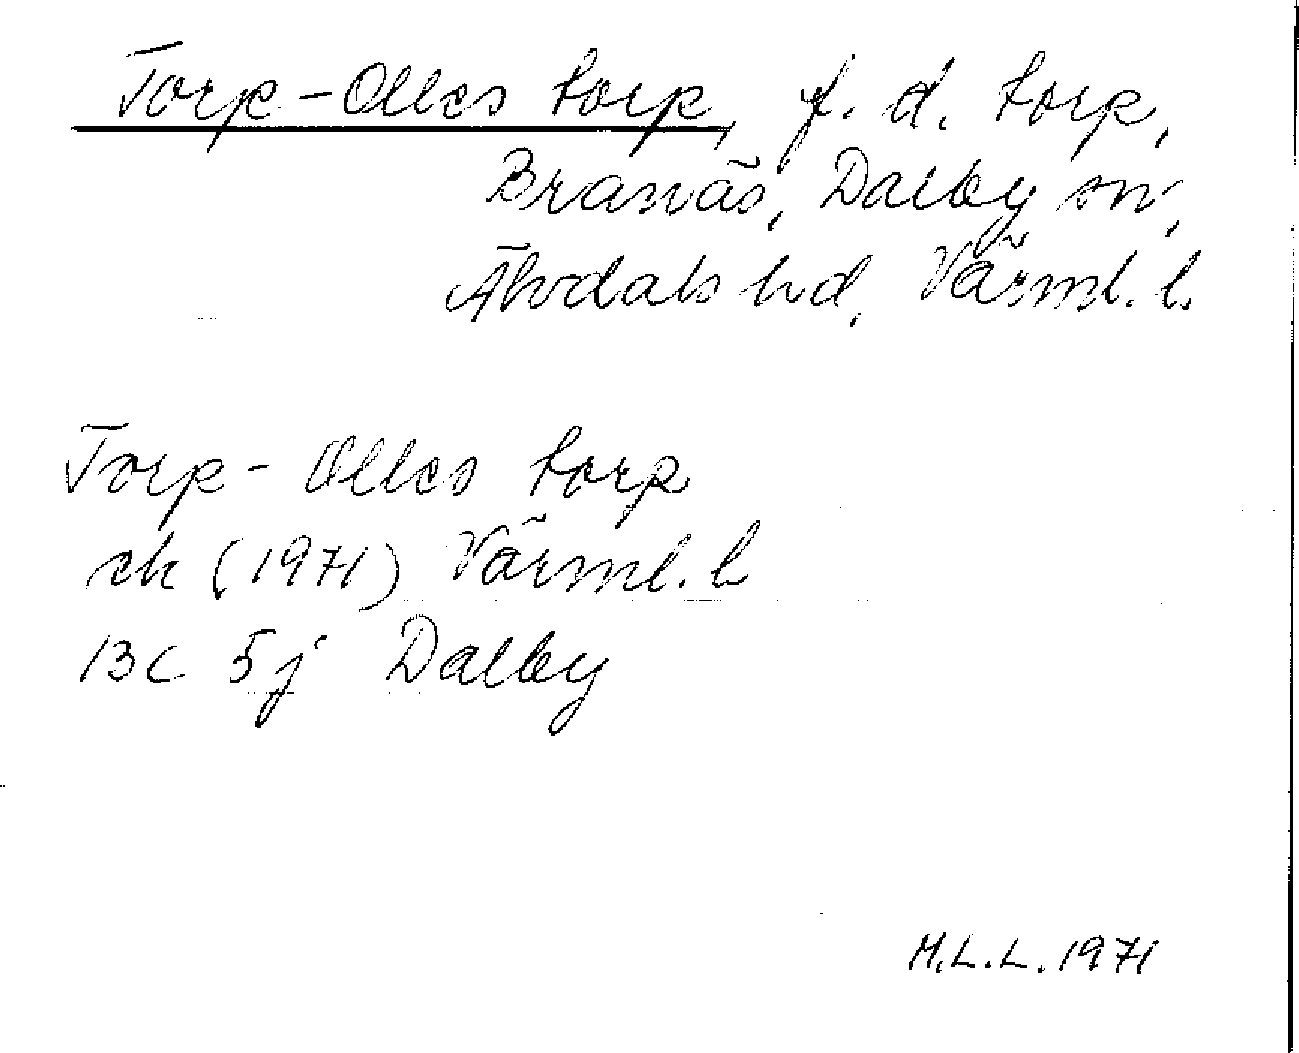 Torp-Olles torp, f. d. torp,
Branäs, Dalby sn,
Älvdals hd, Värml. l.
Torp-Olles torp
ek (1971) Värml. l
13C 5j Dalby
M.L.L. 1971